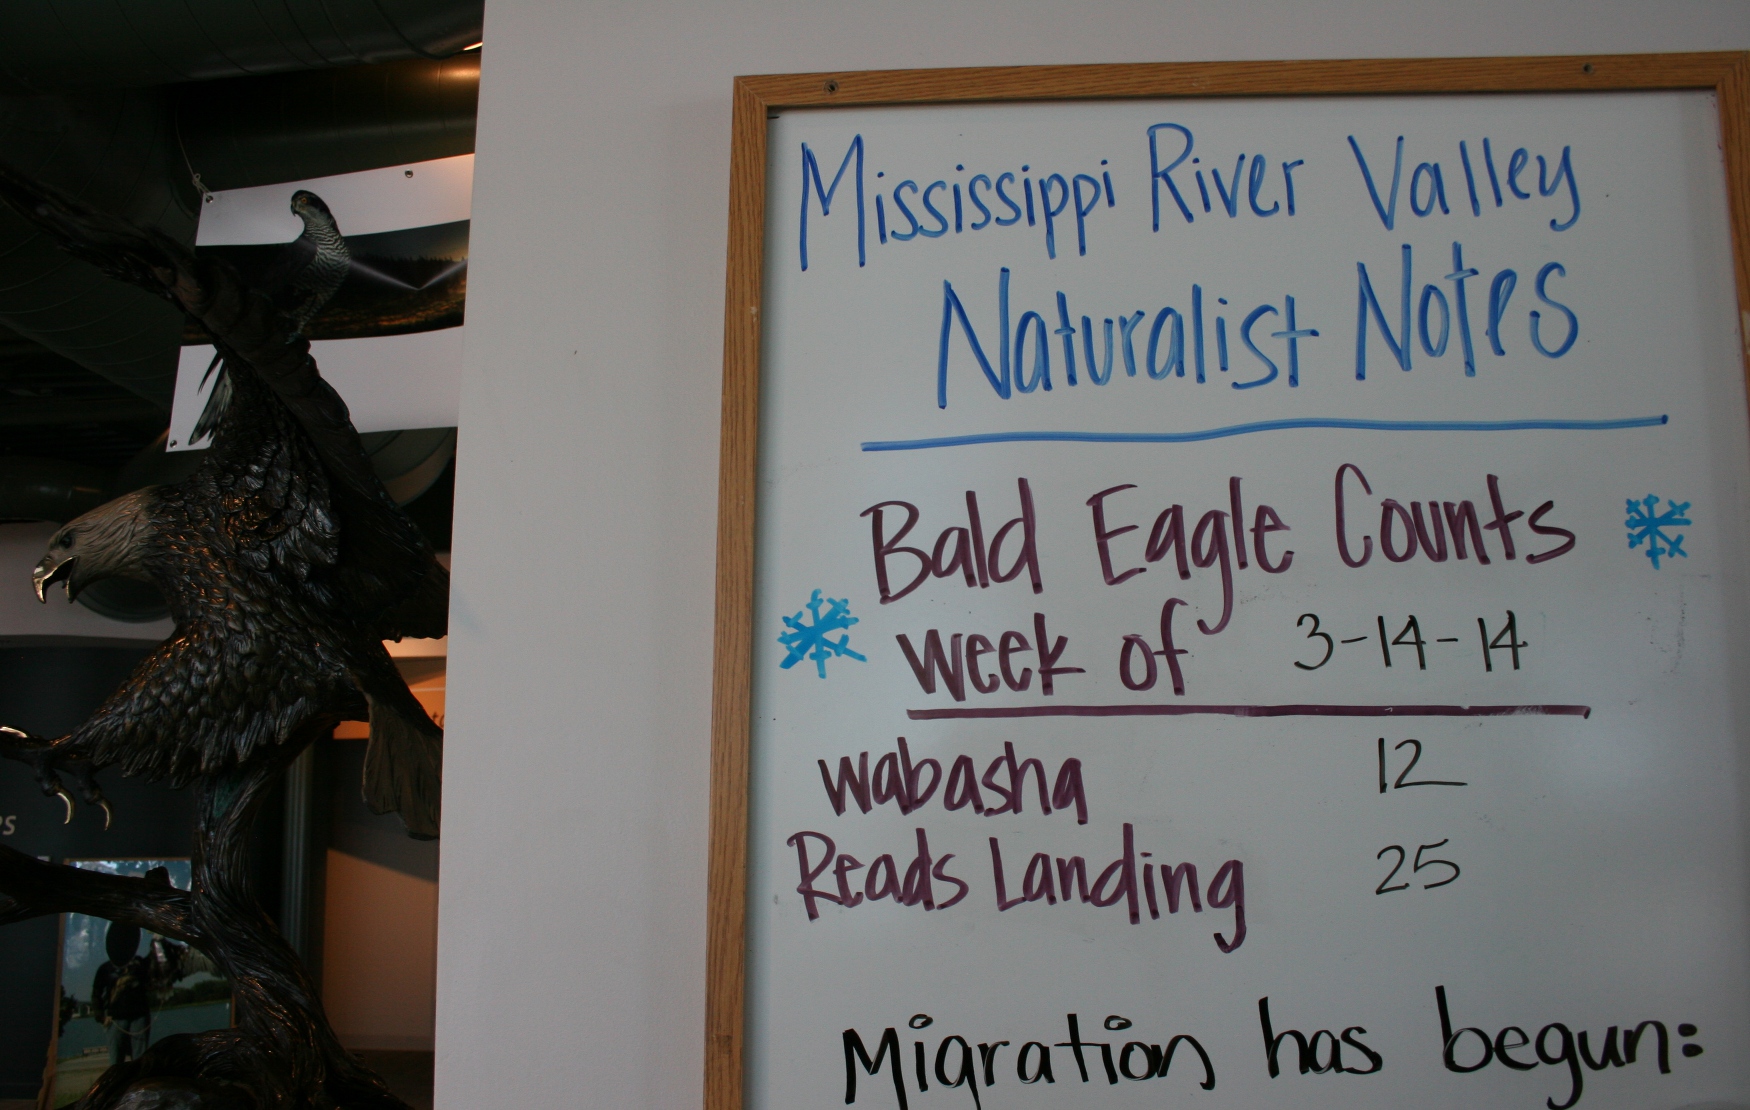 Mississippi River Valley
Naturalist Notes
Bald Eagle Counts
week of 3-14-14
wabasha 12
Reads Landing 25
Migration has begun: